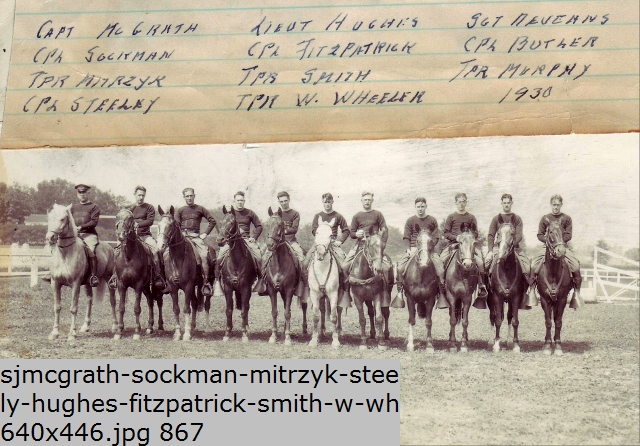 CAPT MCGRATH LIEUT HUGHES SGT NEVEANS
CPL SOCKMAN CPL FITZPATRICK CPL BUTLER
TPR MITRZYK TPR SMITH TPR MURPHY
CPL STEELEY TPR W. WHEELER 1930
sjmcgrath-sockman-mitrzyk-stee
ly-hughes-fitzpatrick-smith-w-wh
640x446.jpg 867